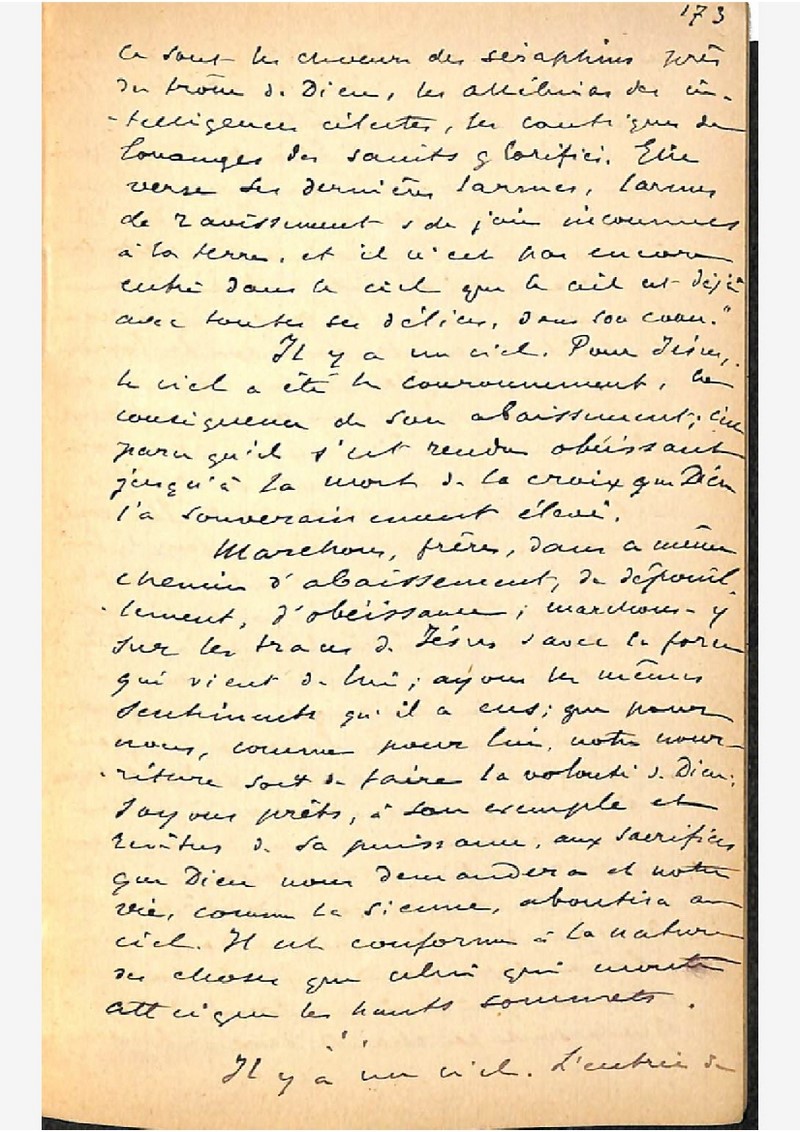 173
ce sont les chœurs des séraphins près
du trône de Dieu, les alléluias des in-
-telligences célestes, les cantiques de
louanges des saints glorifiés. Elie
verse ses dernières larmes, larmes
de ravissement & de joie inconnues
à la terre, et il n'est pas encore
entré dans le ciel que le ciel est déjà
avec toutes ses délices, dans son cœur."
Il y a un ciel. Pour Jésus,
le ciel a été le couronnement, la
conséquence de son abaissement; c'est
parce qu'il s'est rendu obéissant
jusqu'à la mort de la croix que Dieu
l'a souverainement élevé.
Marchons, frères, dans ce même
chemin d'abaissement, de dépouil-
-lement, d'obéissance; marchons-y
sur les traces de Jésus & avec la force
qui vient de lui; ayons les mêmes
sentiments qu'il a eus; que pour
nous, comme pour lui, notre nour-
-riture soit de faire la volonté de Dieu;
soyons prêts, à son exemple et
revêtus de sa puissance, aux sacrifices
que Dieu nous demandera et notre
vie, comme la sienne, aboutira au
ciel. Il est conforme à la nature
des choses que celui qui monte
atteigne les hauts sommets.
Il y a un ciel. L'entrée de